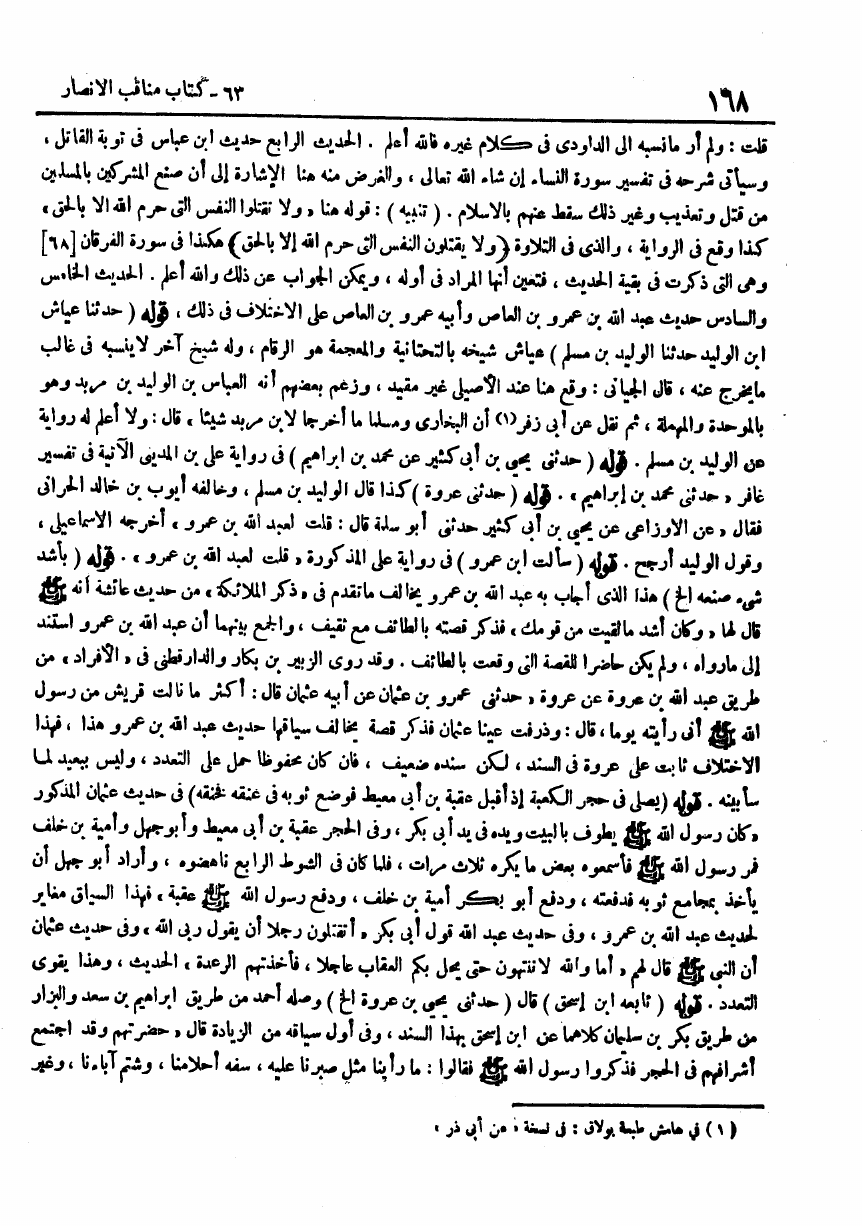 ١٦٨
٦٣ - كتاب مناقب الانصار
قلت : ولم أر مانسبه الى الداودى فى كلام غيره فالله أعلم . الحديث الرابع حديث ابن عباس فى توبة القاتل ،
وسيأتى شرحه فى تفسير سورة النساء إن شاء الله تعالى ، والغرض منه هنا الإشارة إلى أن صنع المشركين بالمسلمين
من قتل وتعذيب وغير ذلك سقط عنهم بالاسلام . ( تنبيه ) : قوله هنا « ولا تقتلوا النفس التى حرم الله الا بالحق »
كذا وقع فى الرواية ، والذى فى التلاوة ﴿ ولا يقتلون النفس التى حرم الله إلا بالحق ﴾ هكذا فى سورة الفرقان [٦٨]
وهى التى ذكرت فى بقية الحديث ، فتعين أنها المراد فى أوله ، ويمكن الجواب عن ذلك والله أعلم . الحديث الخامس
والسادس حديث عبد الله بن عمرو بن العاص وأبيه عمرو بن العاص على الاختلاف فى ذلك ، قوله ( حدثنا عياش
ابن الوليد حدثنا الوليد بن مسلم ) عياش شيخه بالتحتانية والمعجمة هو الرقام ، وله شيخ آخر لاينسبه فى غالب
مايخرج عنه ، قال الجيانى : وقع هنا عند الأصيلى غير مقيد ، وزعم بعضهم أنه العباس بن الوليد بن مربد وهو
بالموحدة والمهملة ، ثم نقل عن أبى زفر (١) أن البخارى ومسلما ما أخرجا لابن مربد شيئا ، قال : ولا أعلم له رواية
عن الوليد بن مسلم . قوله ( حدثنى يحيى بن أبى كثير عن محمد بن ابراهيم ) فى رواية على بن المدينى الآتية فى تفسير
غافر « حدثنى محمد بن إبراهيم » . قوله ( حدثنى عروة ) كذا قال الوليد بن مسلم ، وخالفه أيوب بن خالد الحرانى
فقال « عن الاوزاعى عن يحيى بن أبى كثير حدثنى أبو سلمة قال : قلت لعبد الله بن عمرو » أخرجه الاسماعيلى ،
وقول الوليد أرجح . قوله ( سألت ابن عمرو ) فى رواية على المذكورة « قلت لعبد الله بن عمرو » . قوله ( بأشد
شىء صنعه الخ ) هذا الذى أجاب به عبد الله بن عمرو يخالف ماتقدم فى « ذكر الملائكة » من حديث عائشة أنه ﷺ
قال لها « وكان أشد مالقيت من قومك » فذكر قصته بالطائف مع ثقيف ، والجمع بينهما أن عبد الله بن عمرو استند
إلى مارواه ، ولم يكن حاضرا للقصة التى وقعت بالطائف . وقد روى الزبير بن بكار والدارقطنى فى « الأفراد » من
طريق عبد الله بن عروة عن عروة « حدثنى عمرو بن عثمان عن أبيه عثمان قال : أكثر ما نالت قريش من رسول
الله ﷺ أنى رأيته يوما ، قال : وذرفت عينا عثمان فذكر قصة يخالف سياقها حديث عبد الله بن عمرو هذا ، فهذا
الاختلاف ثابت على عروة فى السند ، لكن سنده ضعيف ، فان كان محفوظا حمل على التعدد ، وليس ببعيد لما
سأبينه . قوله ( يصلى فى حجر الكعبة إذ أقبل عقبة بن أبى معيط فوضع ثوبه فى عنقه فخنقه ) فى حديث عثمان المذكور
« كان رسول الله ﷺ يطوف بالبيت ويده فى يد أبى بكر ، وفى الحجر عقبة بن أبى معيط وأبو جهل وأمية بن خلف
فمر رسول الله ﷺ فأسمعوه بعض ما يكره ثلاث مرات ، فلما كان فى الشوط الرابع ناهضوه ، وأراد أبو جهل أن
يأخذ بمجامع ثوبه فدفعته ، ودفع أبو بكر أمية بن خلف ، ودفع رسول الله ﷺ عقبة » فهذا السياق مغاير
لحديث عبد الله بن عمرو ، وفى حديث عبد الله قول أبى بكر « أتقتلون رجلا أن يقول ربى الله » وفى حديث عثمان
أن النبى ﷺ قال لهم « أما والله لاتنتهون حتى يحل بكم العقاب عاجلا ، فأخذتهم الرعدة » الحديث ، وهذا يقوى
التعدد . قوله ( تابعه ابن إسحق ) قال ( حدثنى يحيى بن عروة الخ ) وصله أحمد من طريق ابراهيم بن سعد والبزار
من طريق بكر بن سليمان كلاهما عن ابن إسحق بهذا السند ، وفى أول سياقه من الزيادة قال « حضرتهم وقد اجتمع
أشرافهم فى الحجر فذكروا رسول الله ﷺ فقالوا : ما رأينا مثل صبرنا عليه ، سفه أحلامنا ، وشتم آباءنا ، وغير
(١) فى هامش طبعة بولاق : فى نسخة « عن أبى ذر »